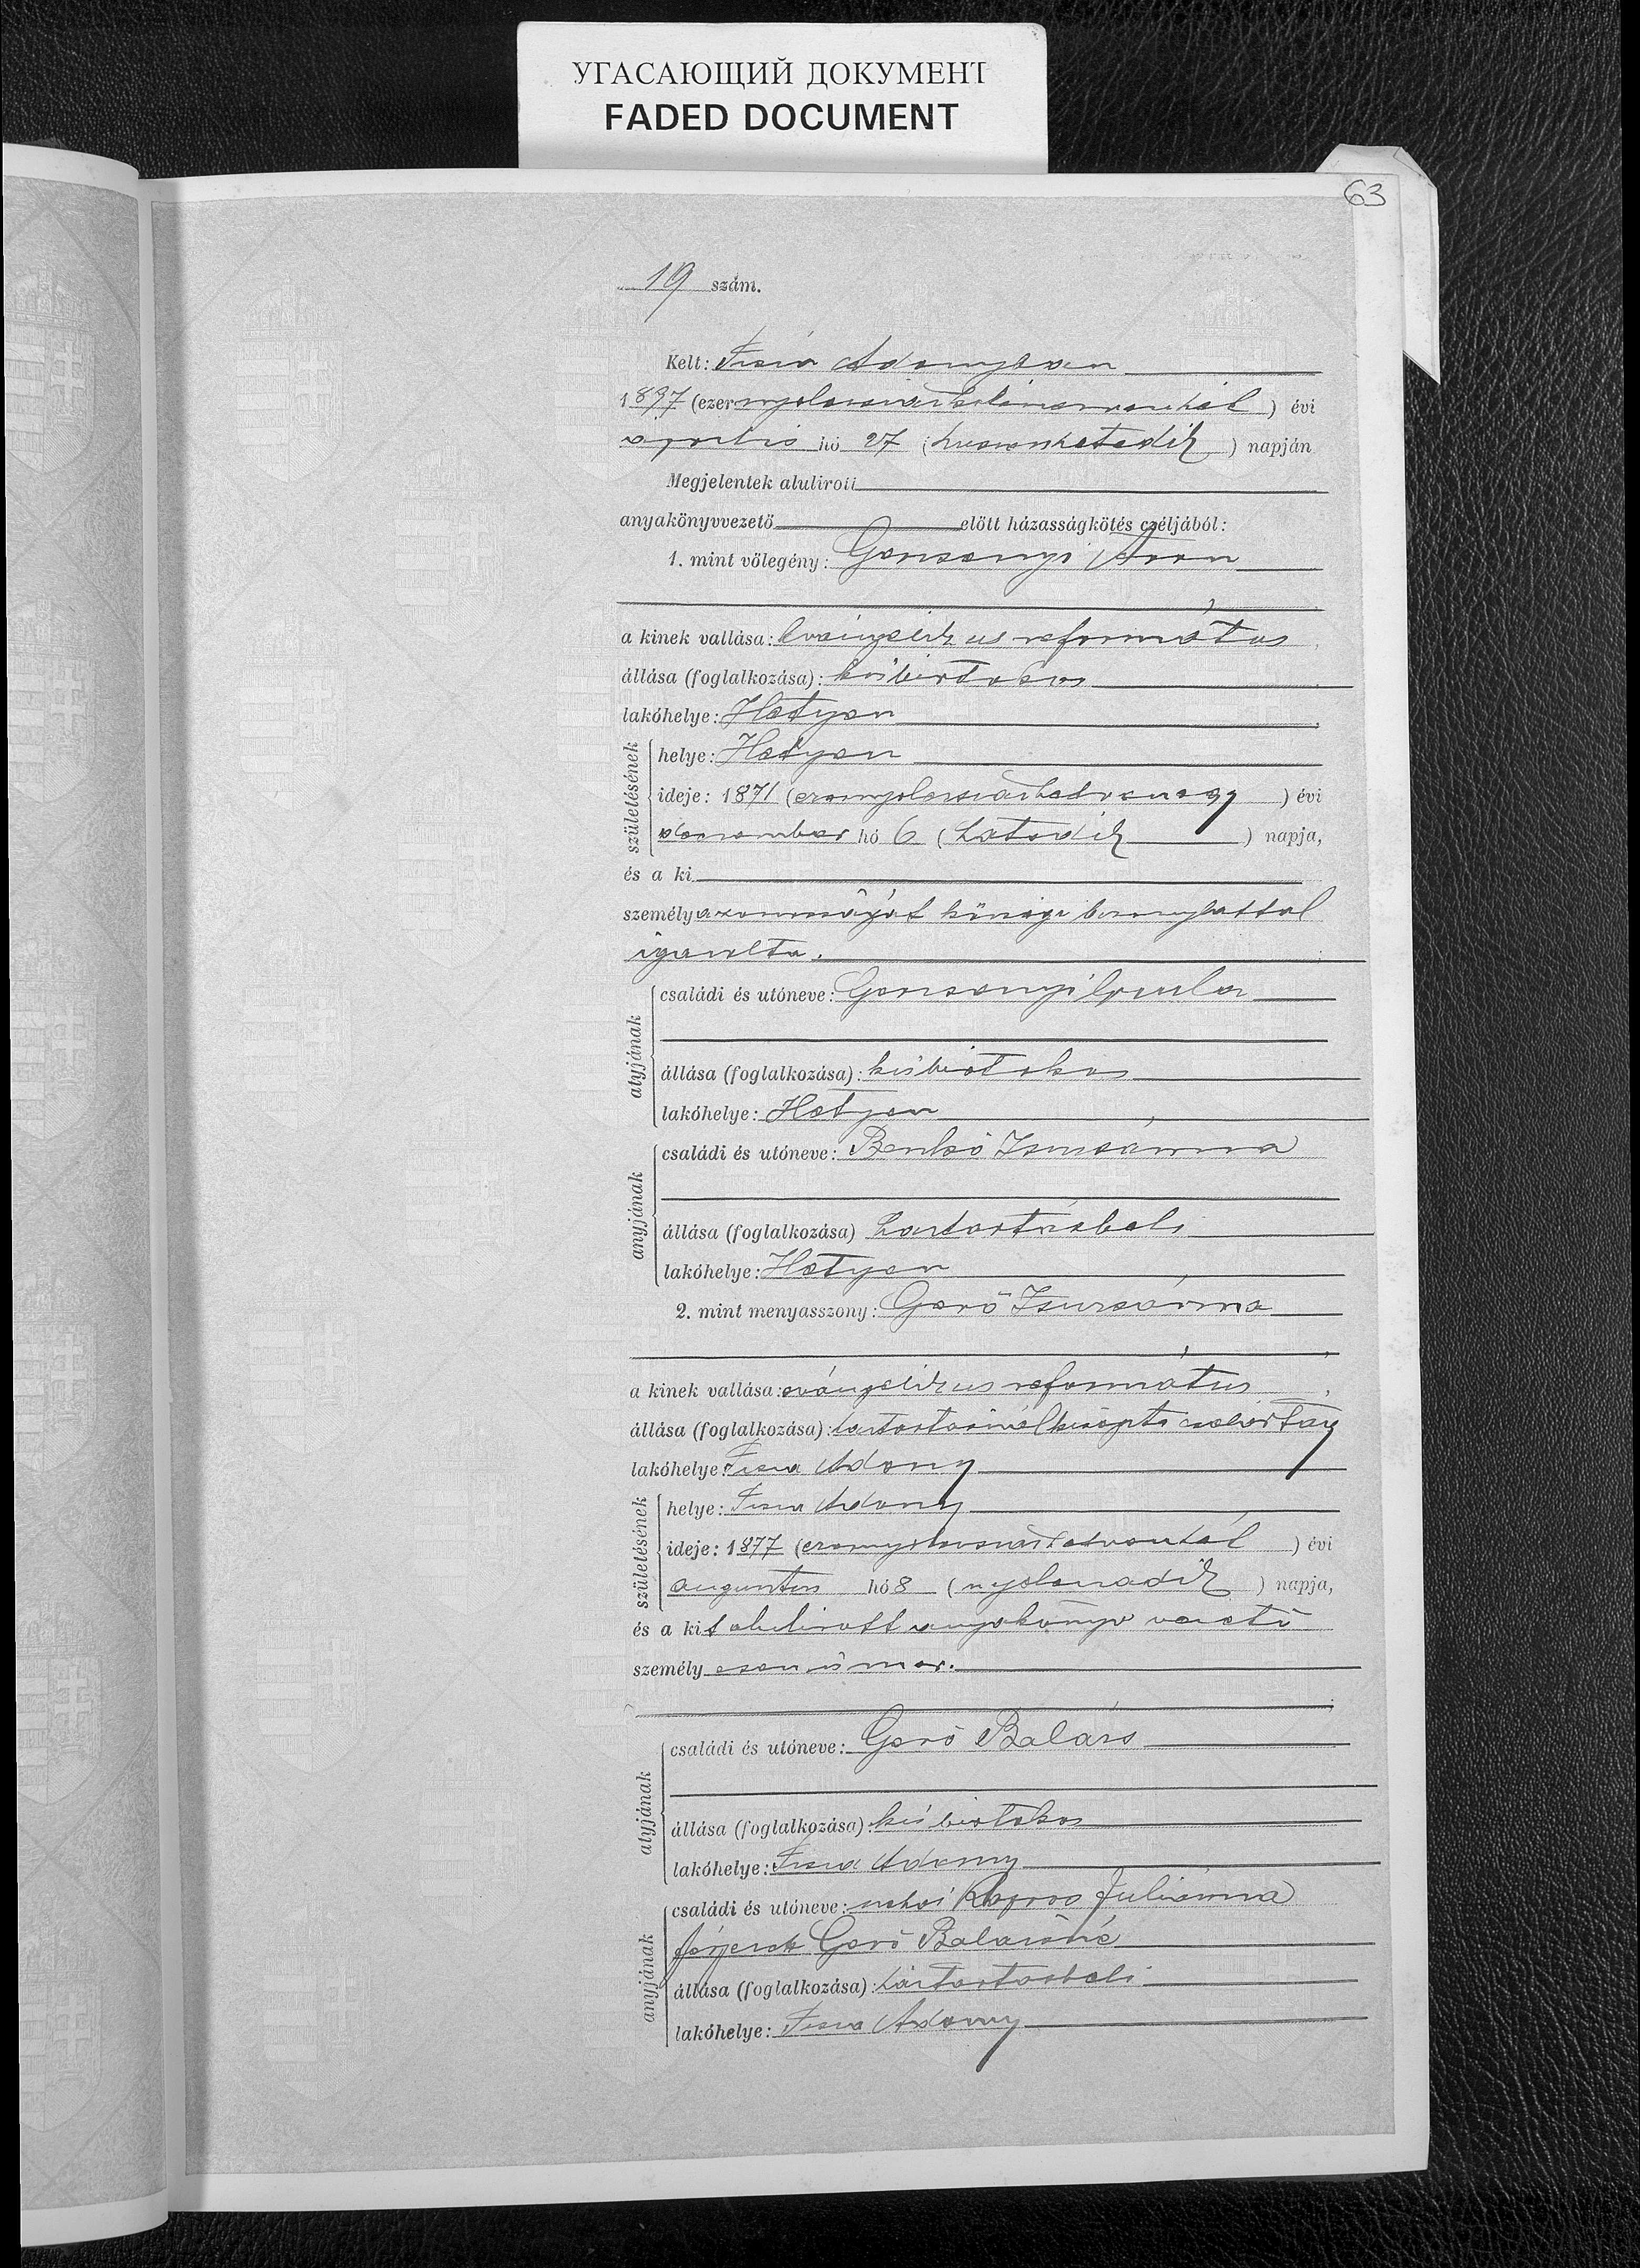 УГАСАЮЩИЙ ДОКУМЕНТ
FADED DOCUMENT
63
19 szám.
Kelt: Tisza Adonyban
1897 (ezernyolcszázkilencvenhét) évi
április hó 27 (huszonhetedik) napján
Megjelentek alulirott
anyakönyvvezető előtt házasságkötés czéljából:
1. mint vőlegény: Gorzsonyi Áron
a kinek vallása: evángelikus református,
állása (foglalkozása): kisbirtokos
lakóhelye: Hetyen
születésének
helye: Hetyen
ideje: 1871 (ezernyolcszázhetvenegy) évi
deczember hó 6 (hatodik) napja,
és a ki
személyazonosságát községi bizonylattal
igazolta.
atyjának
családi és utóneve: Gorzsonyi Gyula
állása (foglalkozása): kisbirtokos
lakóhelye: Hetyen
anyjának
családi és utóneve: Benkő Zsuzsánna
állása (foglalkozása) háztartásbeli
lakóhelye: Hetyen
2. mint menyasszony: Gerő Zsuzsánna
a kinek vallása: evángelikus református,
állása (foglalkozása): háztartásinál
lakóhelye: Tisza Adony
születésének
helye: Tisza Adony
ideje: 1877 (ezernyolcszázhetvenhét) évi
augusztus hó 8 (nyolczadik) napja,
és a kit alulirott anyakönyv vezető
személyesen ismer.
atyjának
családi és utóneve: Gerő Balázs
állása (foglalkozása): kisbirtokos
lakóhelye: Tisza Adony
anyjának
családi és utóneve: néhai Juliánna
férjezett Gerő Balázsné
állása (foglalkozása): háztartásbeli
lakóhelye: Tisza Adony